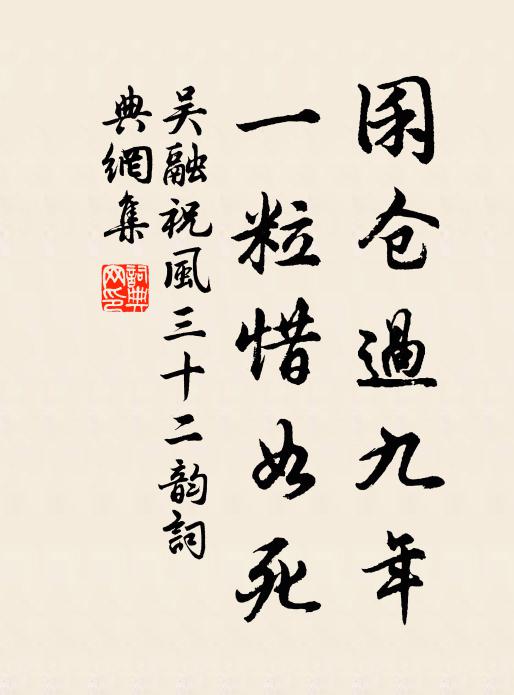 囷仓過九年
一粒惜如死
吴融祝風三十二韵詞
典網集
詞典
网印